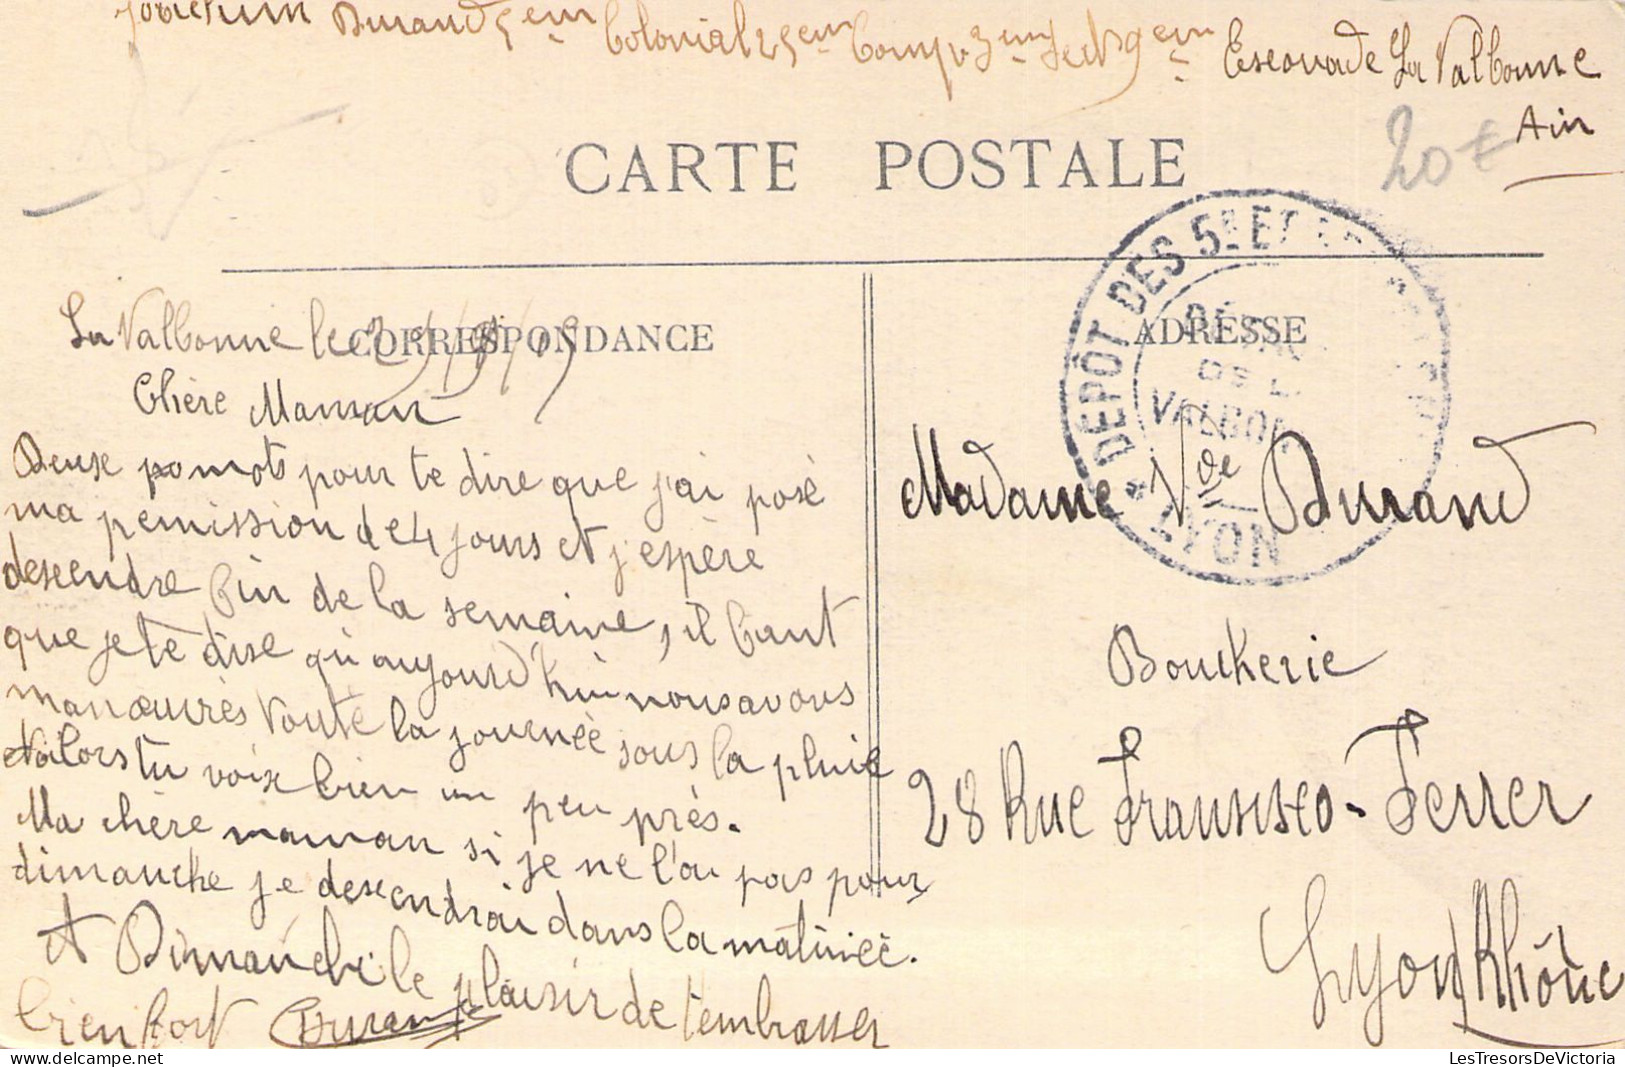 Durand 5 em Colonial 25 em Comp 3 em Sect 9 em Escouade La Valbonne
Ain
20 €
CARTE POSTALE
DÉPÔT DES 5E ET
VALBON
LYON
CORRESPONDANCE
ADRESSE
La Valbonne le
Chère Maman
Deuse mots pour te dire que j'ai posé
ma pemission de 4 jours et j'espère
descendre fin de la semaine, il faut
que je te dise qu'aujourd'hui nous avons
manœuvrès toute la journéé sous la pluie
alors tu voix bien un peu près.
Ma chère maman si je ne l'ai pas pour
dimanche je descendrai dans la matinéé.
Et Dimanche le plaisir de t'embrasser
bien fort Durand
Madame Vve Durand
Boucherie
28 Rue Fransisco-Ferrer
Lyon Rhône
LesTresorsDeVictoria